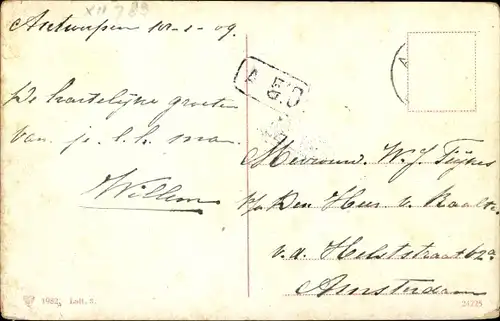 XII 789
Antwerpen 10-1-09.
De hartelijke groeten
van je l.h. man.
Willem
Mevrouw W.J.
p/a Den Heer v. Raalte
v.d. Helststraat 62a
Amsterdam
1982, Lott. 8.
24725